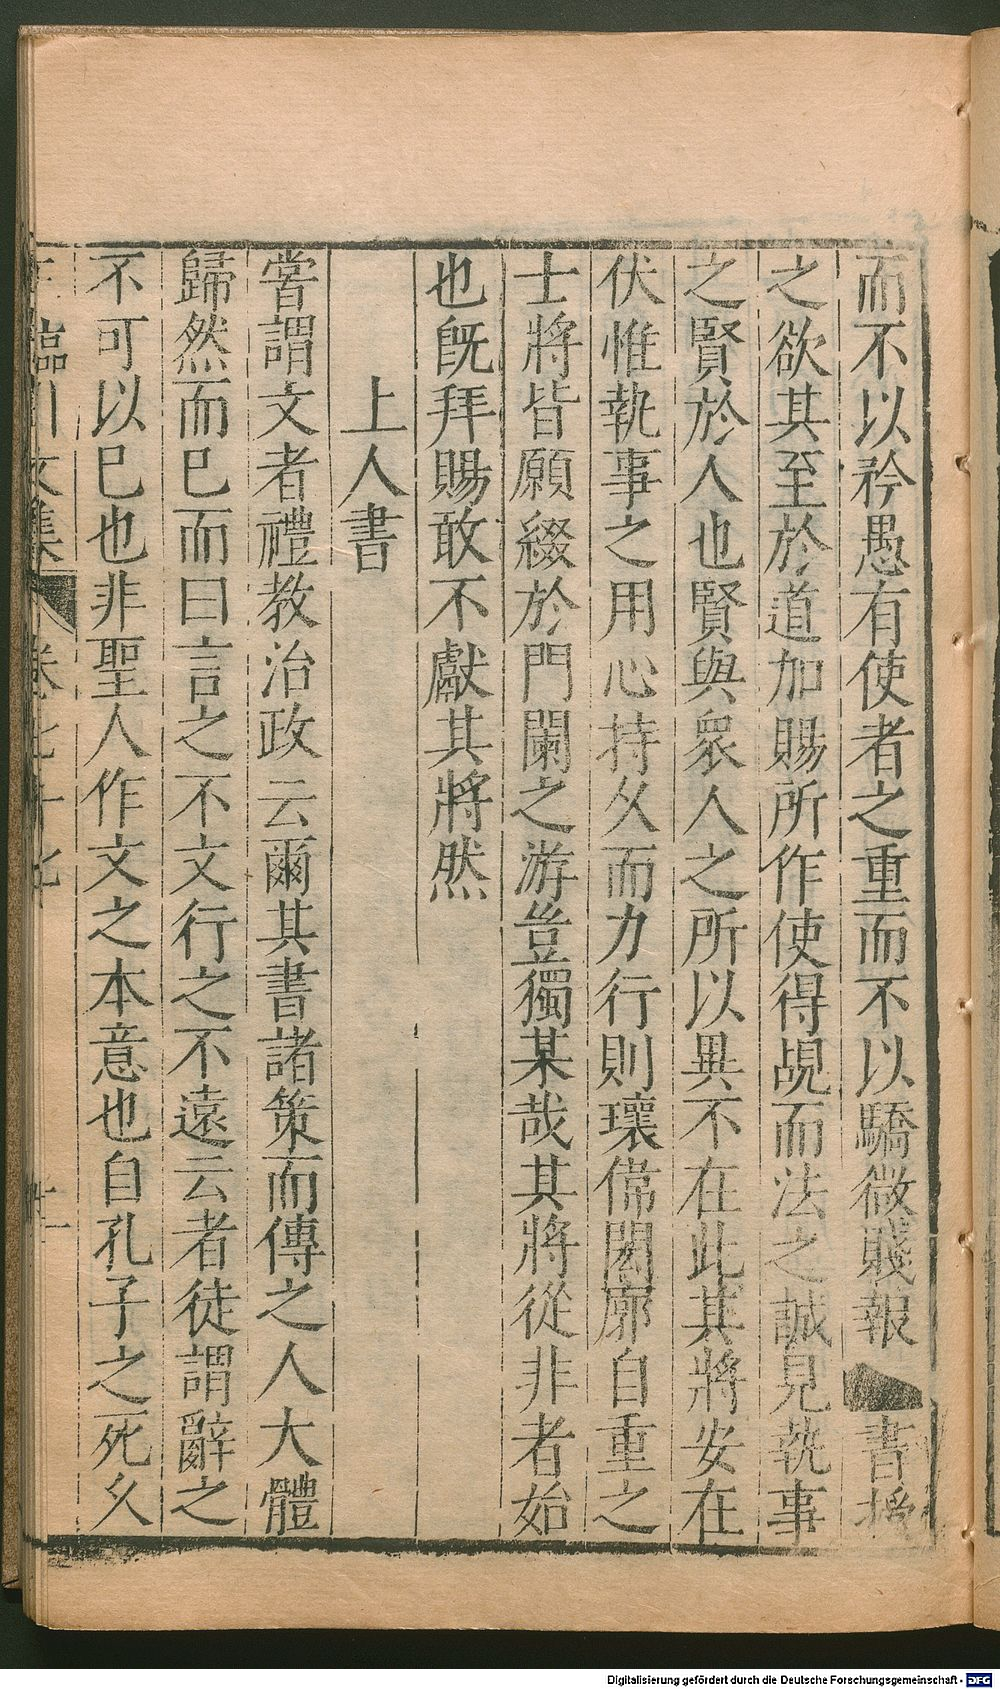 而不以矜愚有使者之重而不以驕微賤報書授
之欲其至於道加賜所作使得覘而法之誠見執事
之賢於人也賢與衆人之所以異不在此其將安在
伏惟執事之用心持久而力行則瓌偉閎廓自重之
士將皆願綴於門闌之游豈獨某哉其將從非者始
也旣拜賜敢不獻其將然
上人書
嘗謂文者禮教治政云爾其書諸策而傳之人大體
歸然而巳而曰言之不文行之不遠云者徒謂辭之
不可以巳也非聖人作文之本意也自孔子之死久
臨川文集 卷七十七
Digitalisierung gefördert durch die Deutsche Forschungsgemeinschaft - DFG